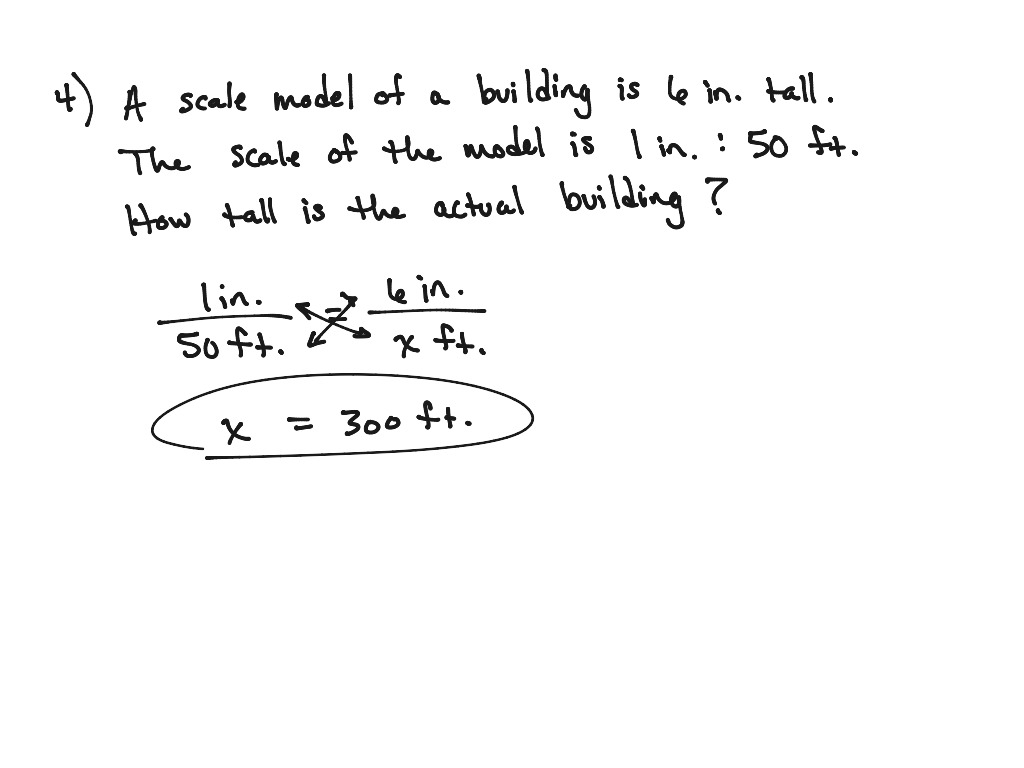 4) A scale model of a building is 6 in. tall.
The scale of the model is 1 in. : 50 ft.
How tall is the actual building?
1 in. = 6 in.
50 ft. x ft.
x = 300 ft.